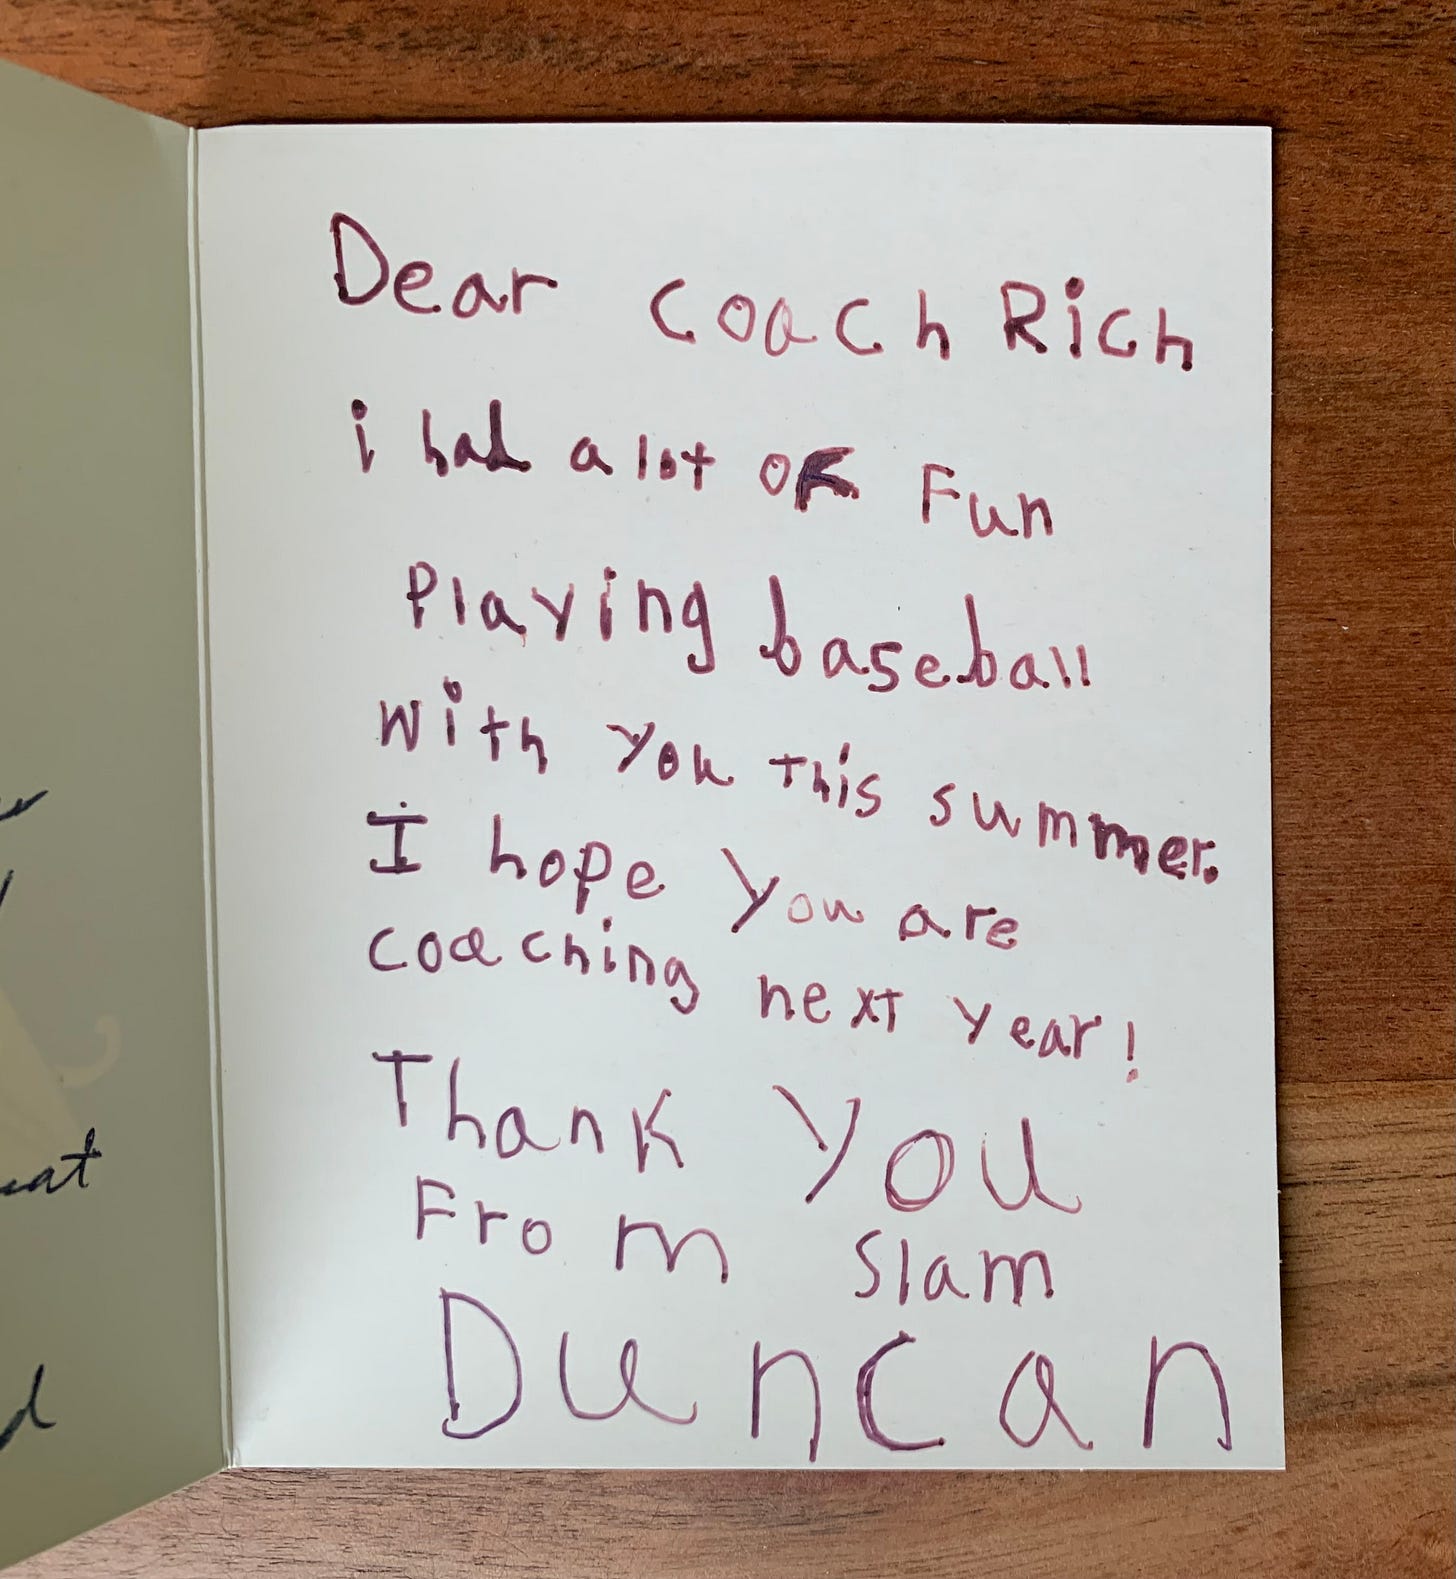 Dear coach Rich
i had a lot of Fun
Playing baseball
with you this summer.
I hope you are
coaching next year!
Thank you
From Slam
Duncan